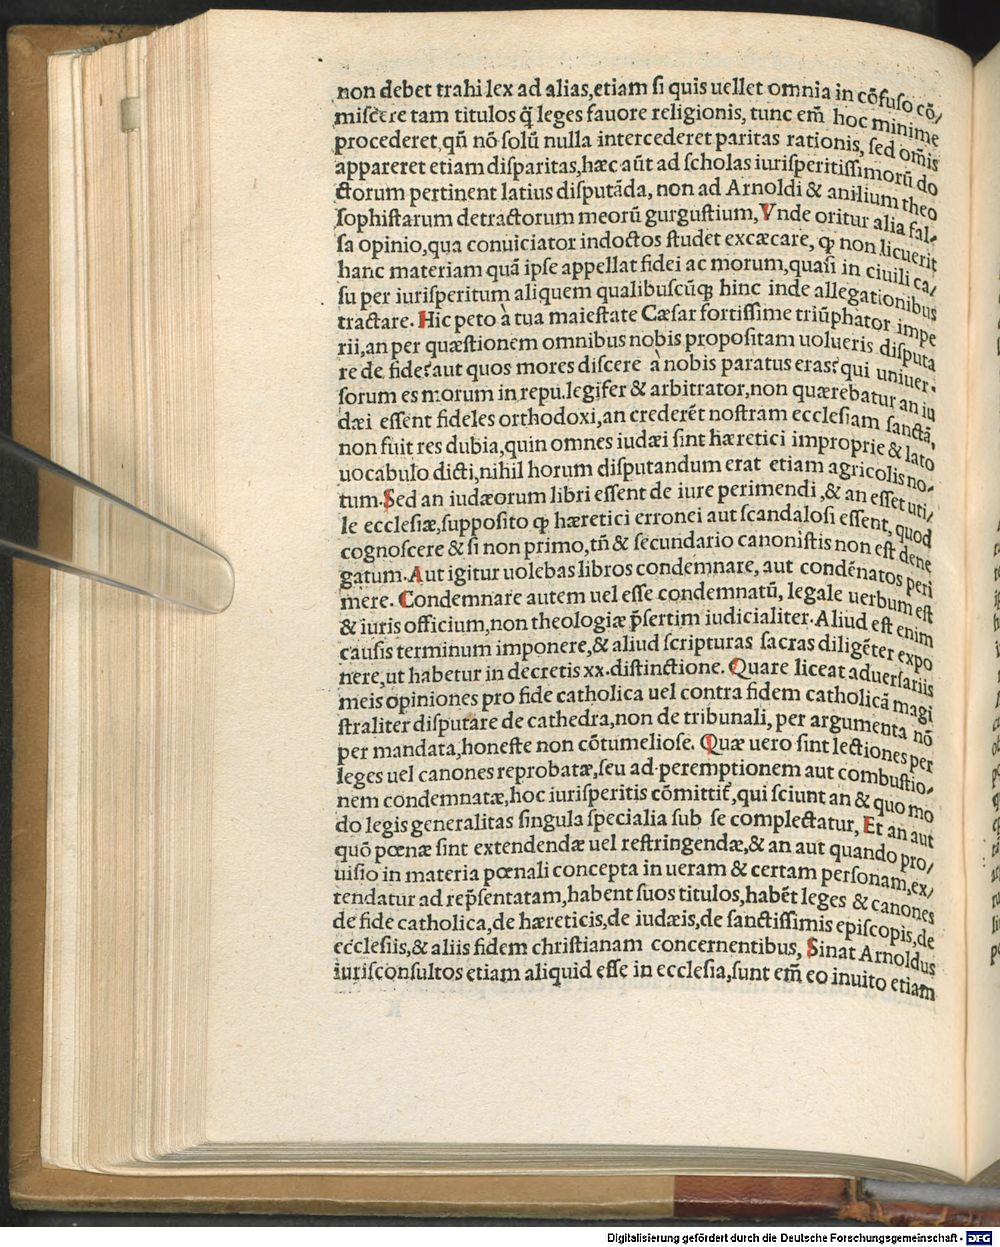 non debet trahi lex ad alias,etiam ſi quis uellet omnia in cõfuſo cõ/
miſcere tam titulos q̃ leges fauore religionis, tunc em̃ hoc minime
procederet,qñ nõ ſolũ nulla intercederet paritas rationis, ſed om̃is
appareret etiam diſparitas,hæc aũt ad ſcholas iuriſperitiſſimorũ do
ctorum pertinent latius diſputãda, non ad Arnoldi & anilium theo
ſophiſtarum detractorum meorũ gurguſtium, Vnde oritur alia fal/
ſa opinio,qua conuiciator indoctos ſtudet excæcare, ꝙ non licuerit
hanc materiam quã ipſe appellat fidei ac morum,quaſi in ciuili ca/
ſu per iuriſperitum aliquem qualibuſcũꝗ hinc inde allegationibus
tractare. Hic peto à tua maieſtate Cæſar fortiſſime triũphator impe
rii,an per quæſtionem omnibus nobis propoſitam uolueris diſputa
re de fide?aut quos mores diſcere à nobis paratus eras? qui uniuer/
ſorum es morum in repu.legifer & arbitrator,non quærebatur an iu
dæi eſſent fideles orthodoxi,an crederẽt noſtram eccleſiam ſanctã,
non fuit res dubia,quin omnes iudæi ſint hæretici improprie & lato
uocabulo dicti,nihil horum diſputandum erat etiam agricolis no/
tum. Sed an iudæorum libri eſſent de iure perimendi ,& an eſſet uti/
le eccleſiæ,ſuppoſito ꝙ hæretici erronei aut ſcandaloſi eſſent, quod
cognoſcere & ſi non primo,tñ & ſecundario canoniſtis non eſt dene
gatum. Aut igitur uolebas libros condemnare, aut condẽnatos peri
mere. Condemnare autem uel eſſe condemnatũ, legale uerbum eſt
& iuris officium,non theologiæ p̃ſertim iudicialiter. Aliud eſt enim
cauſis terminum imponere,& aliud ſcripturas ſacras diligẽter expo
nere,ut habetur in decretis xx.diſtinctione. Quare liceat aduerſariis
meis opiniones pro fide catholica uel contra fidem catholicã magi
ſtraliter diſputare de cathedra,non de tribunali, per argumenta nõ
per mandata,honeſte non cõtumelioſe. Quæ uero ſint lectiones per
leges uel canones reprobatæ,ſeu ad peremptionem aut combuſtio/
nem condemnatæ,hoc iuriſperitis cõmittit᷑,qui ſciunt an & quo mo
do legis generalitas ſingula ſpecialia ſub ſe complectatur, Et an aut
quõ pœnæ ſint extendendæ uel reſtringendæ,& an aut quando pro/
uiſio in materia pœnali concepta in ueram & certam perſonam,ex/
tendatur ad rep̃ſentatam,habent ſuos titulos,habẽt leges & canones
de fide catholica,de hæreticis,de iudæis,de ſanctiſſimis epiſcopis,de
eccleſiis,& aliis fidem chriſtianam concernentibus, Sinat Arnoldus
iuriſconſultos etiam aliquid eſſe in eccleſia,ſunt em̃ eo inuito etiam
Digitalisierung gefördert durch die Deutsche Forschungsgemeinschaft - DFG